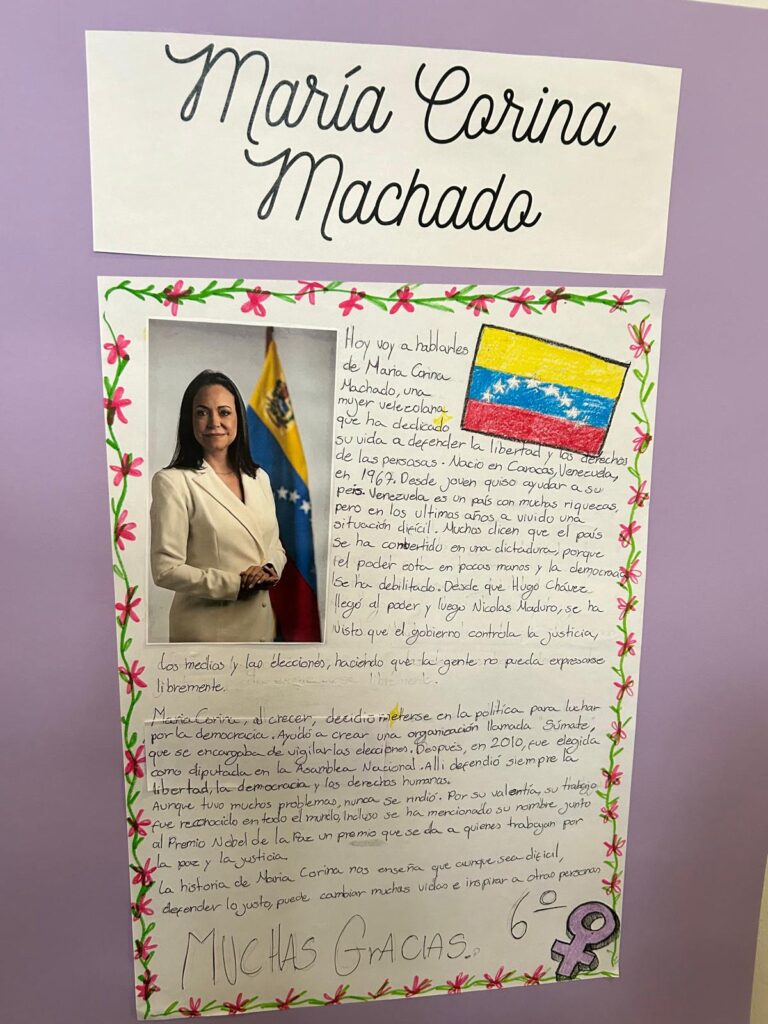 María Corina
Machado
Hoy voy a hablarles
de Maria Corina
Machado, una
mujer velezolana
que ha dedicado
su vida a defender la libertad y los derechos
de las persosas. Nacio en Caracas, Venezuela,
en 1967. Desde joven quiso ayudar a su
peis. Venezuela es un país con muchas riquezas,
pero en los ultimas años a vivido una
situación dificil. Muchos dicen que el país
se ha convertido en una dictadura, porque
el poder esta en pocas manos y la democracia
se ha debilitado. Desde que Hugo Chávez
llegó al poder y luego Nicolas Maduro, se ha
visto que el gobierno controla la justicia,
los medios y las elecciones, haciendo que la gente no pueda expresarse
libremente.
Maria Corina, al crecer, decidio meterse en la política para luchar
por la democracia. Ayudó a crear una organización llamada Súmate,
que se encargaba de vigilar las elecciones. Después, en 2010, fue elegida
como diputada en la Asamblea Nacional. Alli defendió siempre la
libertad, la democracia y los derechos humanos.
Aunque tuvo muchos problemas, nunca se rindió. Por su valentía, su trabajo
fue reconocido en todo el mundo, Incluso se ha mencionado su nombre junto
al Premio Nobel de la Paz un premio que se da a quienes trabajan por
la paz y la justicia.
La historia de Maria Corina nos enseña que aunque sea dificil,
defender lo justo, puede cambiar muchas vidas e inspirar a otras personas
6º
MUCHAS GRACIAS.